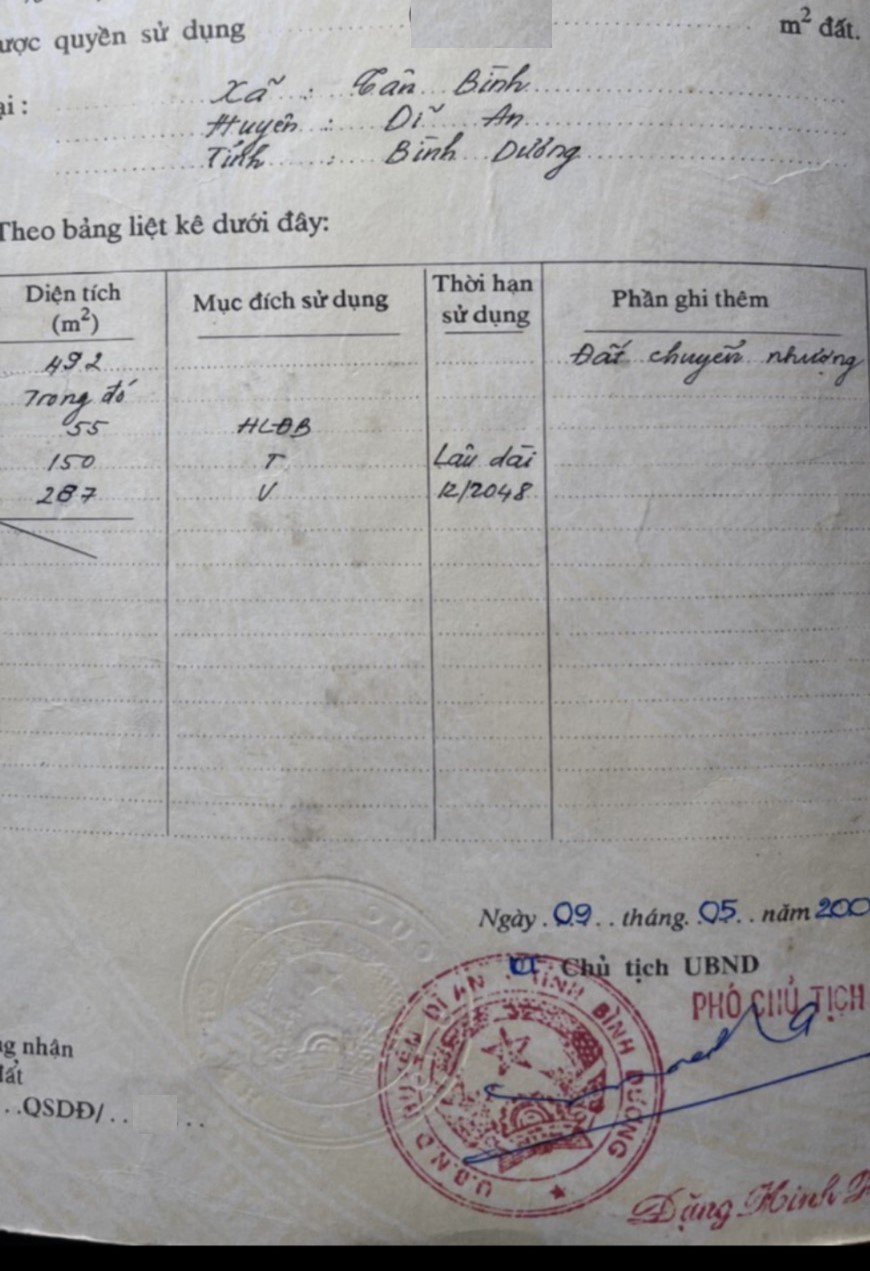 ược quyền sử dụng m² đất.
ại : Xã : Tân Bình
Huyện : Dĩ An
Tỉnh : Bình Dương
Theo bảng liệt kê dưới đây:
Diện tích (m²) Mục đích sử dụng Thời hạn sử dụng Phần ghi thêm
492 Đất chuyển nhượng
Trong đó
55 HLĐB
150 T Lâu dài
287 V 12/2048
Ngày 09 tháng 05 năm 200
Chủ tịch UBND
PHÓ CHỦ TỊCH
U.B.N.D HUYỆN DĨ AN TỈNH BÌNH DƯƠNG
ng nhận
đất
QSDĐ/
Đặng Minh